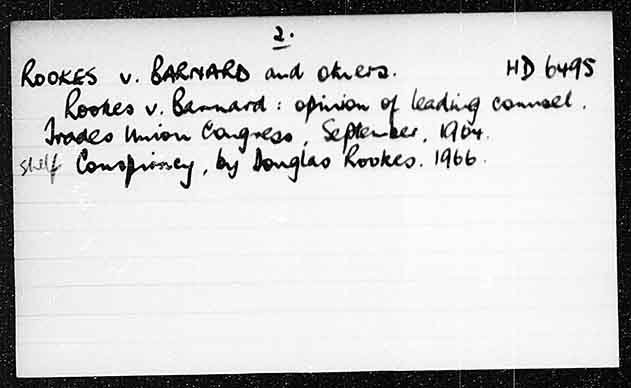 2.
ROOKES v. BARNARD and others. HD 6495
Rookes v. Barnard : opinion of leading counsel.
Trades Union Congress, September, 1964.
shelf Conspiracy, by Douglas Rookes. 1966.